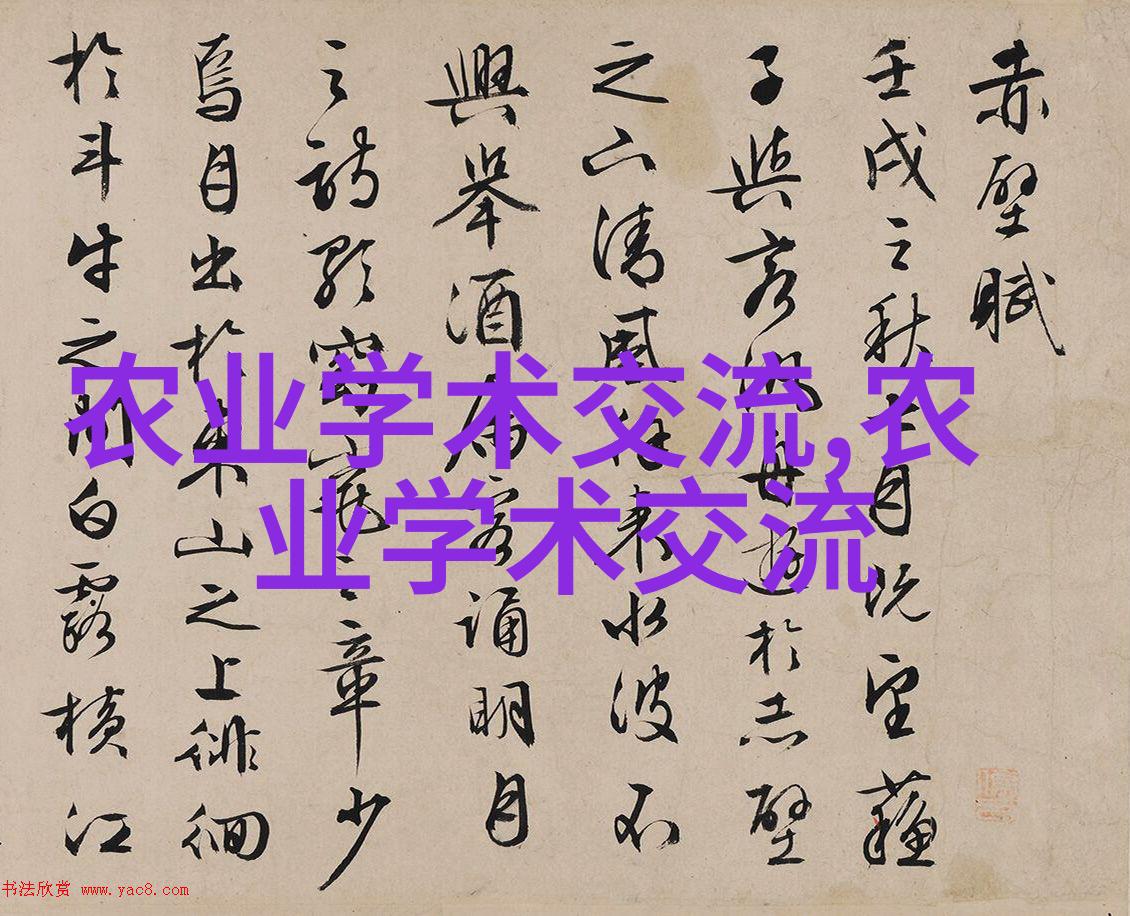 赤壁賦
壬戌之秋七月既望蘇
子與客泛舟遊於赤壁
之下清風徐來水波不
興舉酒屬客誦明月
之詩歌窈窕之章少
焉月出於東山之上徘徊
於斗牛之間白露橫江
农业学术交流,农
业学术交流
书法欣赏 www.yac8.com